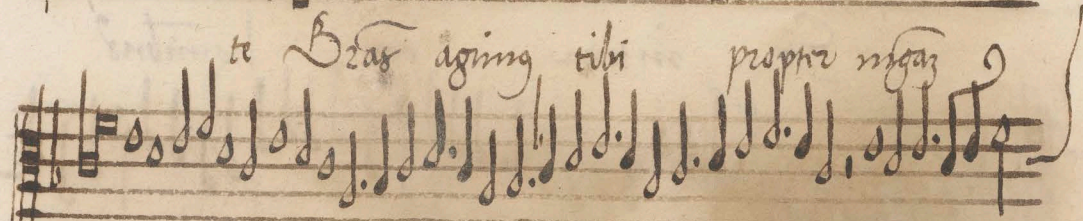 te Gra͠s agimꝰ tibi propter mga͠m